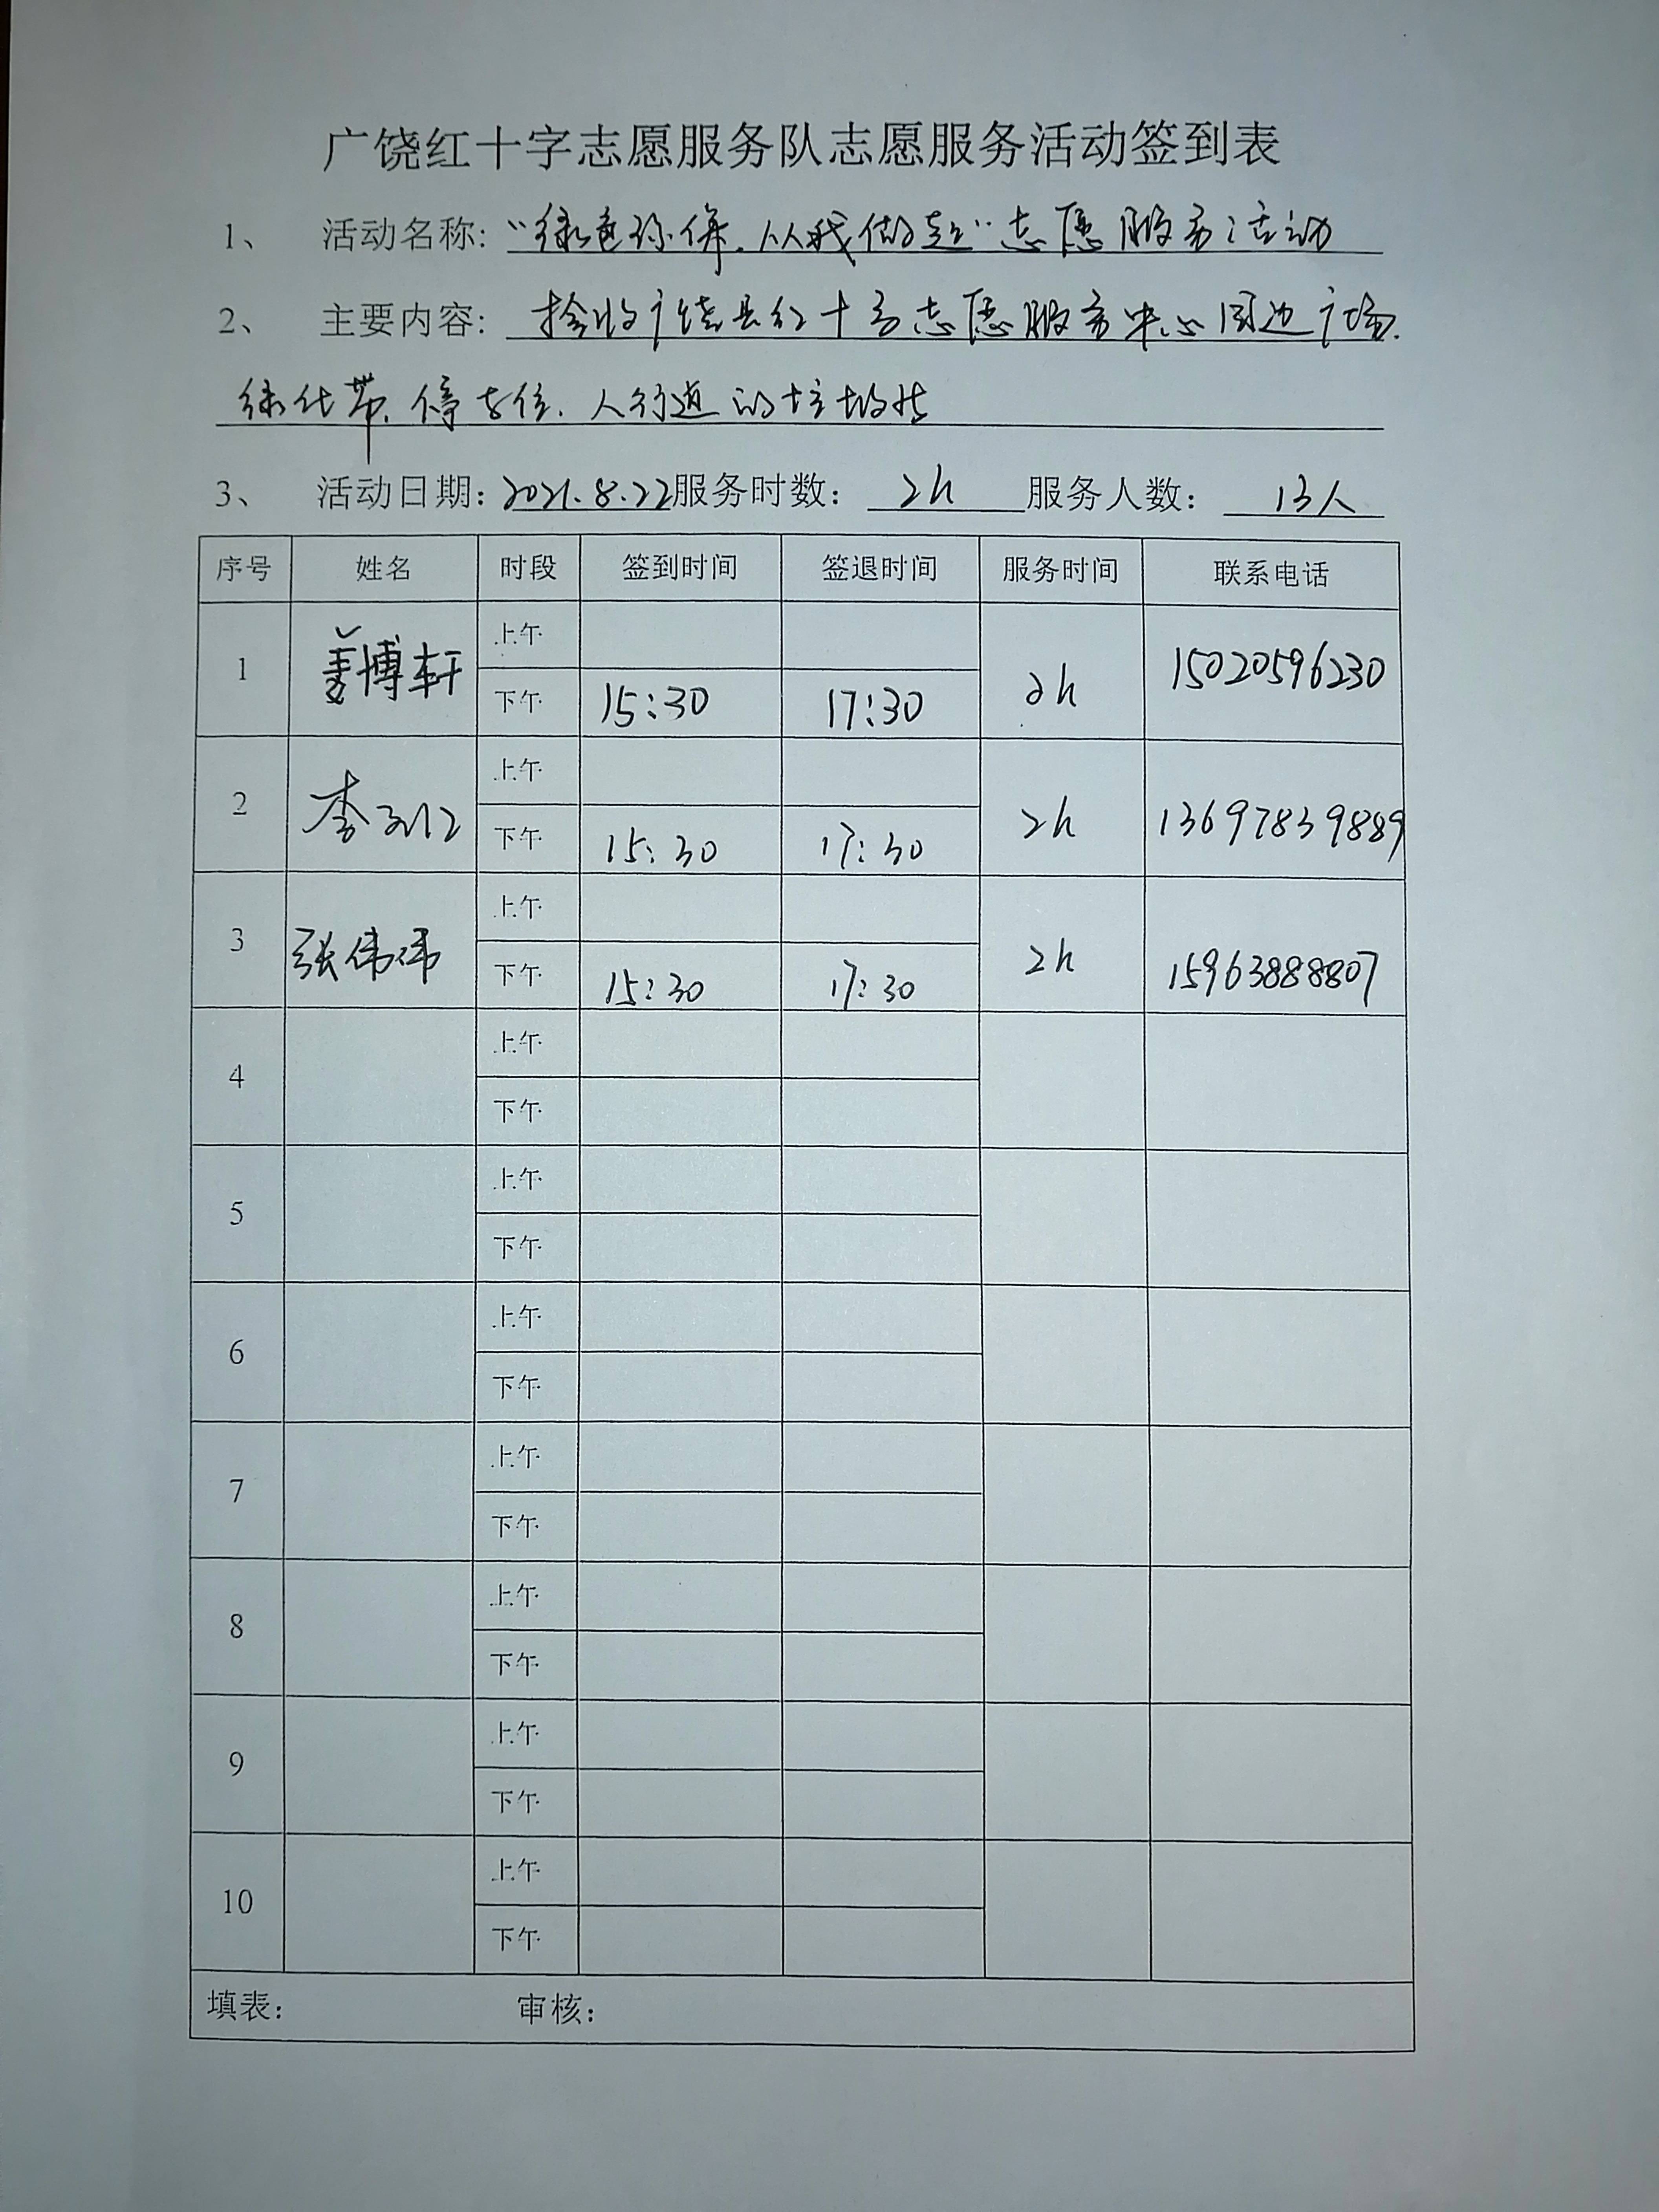 广饶红十字志愿服务队志愿服务活动签到表
1、 活动名称: “绿色环保，从我做起”志愿服务活动
2、 主要内容: 捡收广饶县红十字志愿服务中心周边广场、
绿化带、停车位、人行道的垃圾
3、 活动日期: 2021.8.22 服务时数: 2h 服务人数: 13人
序号 姓名 时段 签到时间 签退时间 服务时间 联系电话
1 姜博轩 上午 2h 15020596230
下午 15:30 17:30
2 李 上午 2h 13697839889
下午 15:30 17:30
3 张伟伟 上午 2h 15963888807
下午 15:30 17:30
4 上午
下午
5 上午
下午
6 上午
下午
7 上午
下午
8 上午
下午
9 上午
下午
10 上午
下午
填表: 审核: